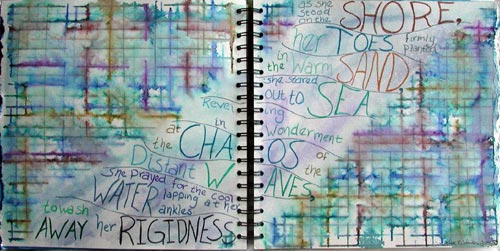 as she
stood
on the SHORE,
her TOES firmly
planted
in the warm SAND,
she stared
OUT TO SEA
Reveling
in wonderment
at the CHAOS of the
Distant WAVES,
She prayed for the cool
WATER lapping at her
ankles
to wash
AWAY her RIGIDNESS